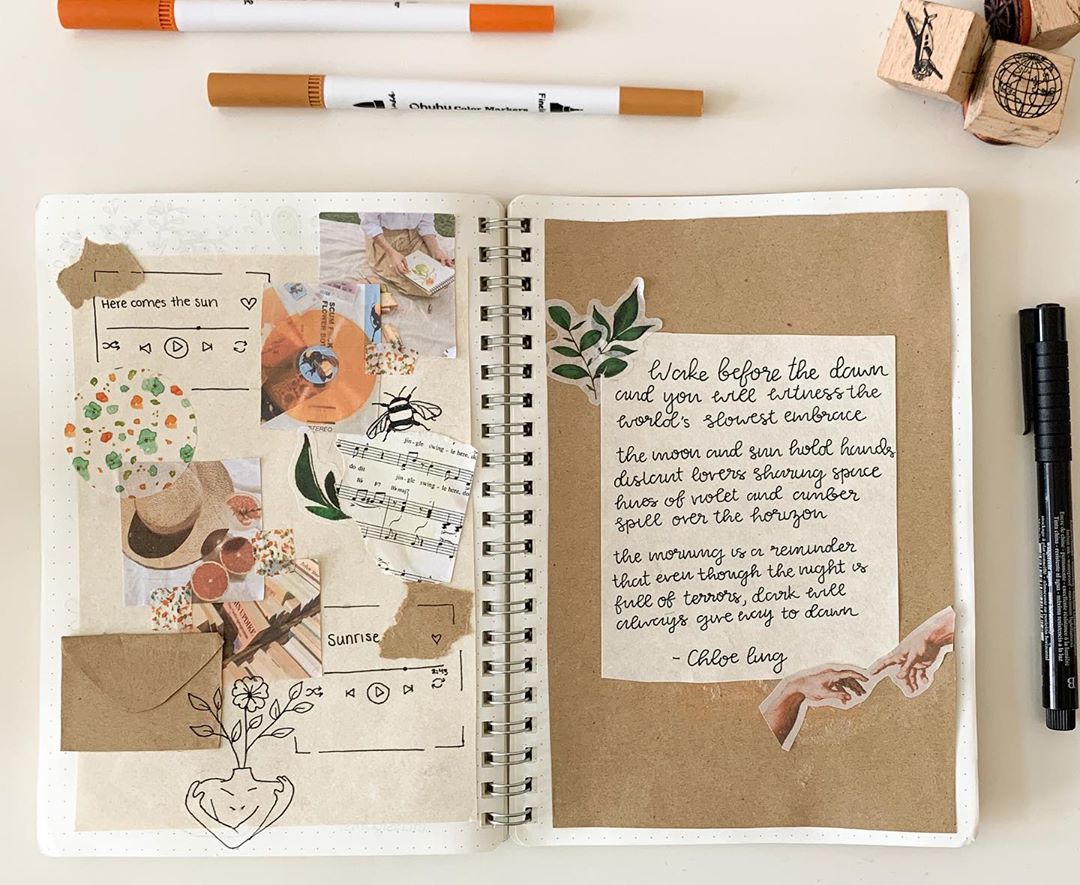 Ohuhu Color Markers
Here comes the sun
SCUM F
FLOWER BO
STEREO
jin - gle swing - le here, do
do dit jin - gle swing - le here, do
B♭ F7 B♭maj
Sunrise
2:43
Wake before the dawn
and you will witness the
world's slowest embrace
the moon and sun hold hands
distant lovers sharing space
hues of violet and amber
spill over the horizon
the morning is a reminder
that even though the night is
full of terrors, dark will
always give way to dawn
- Chloe ling